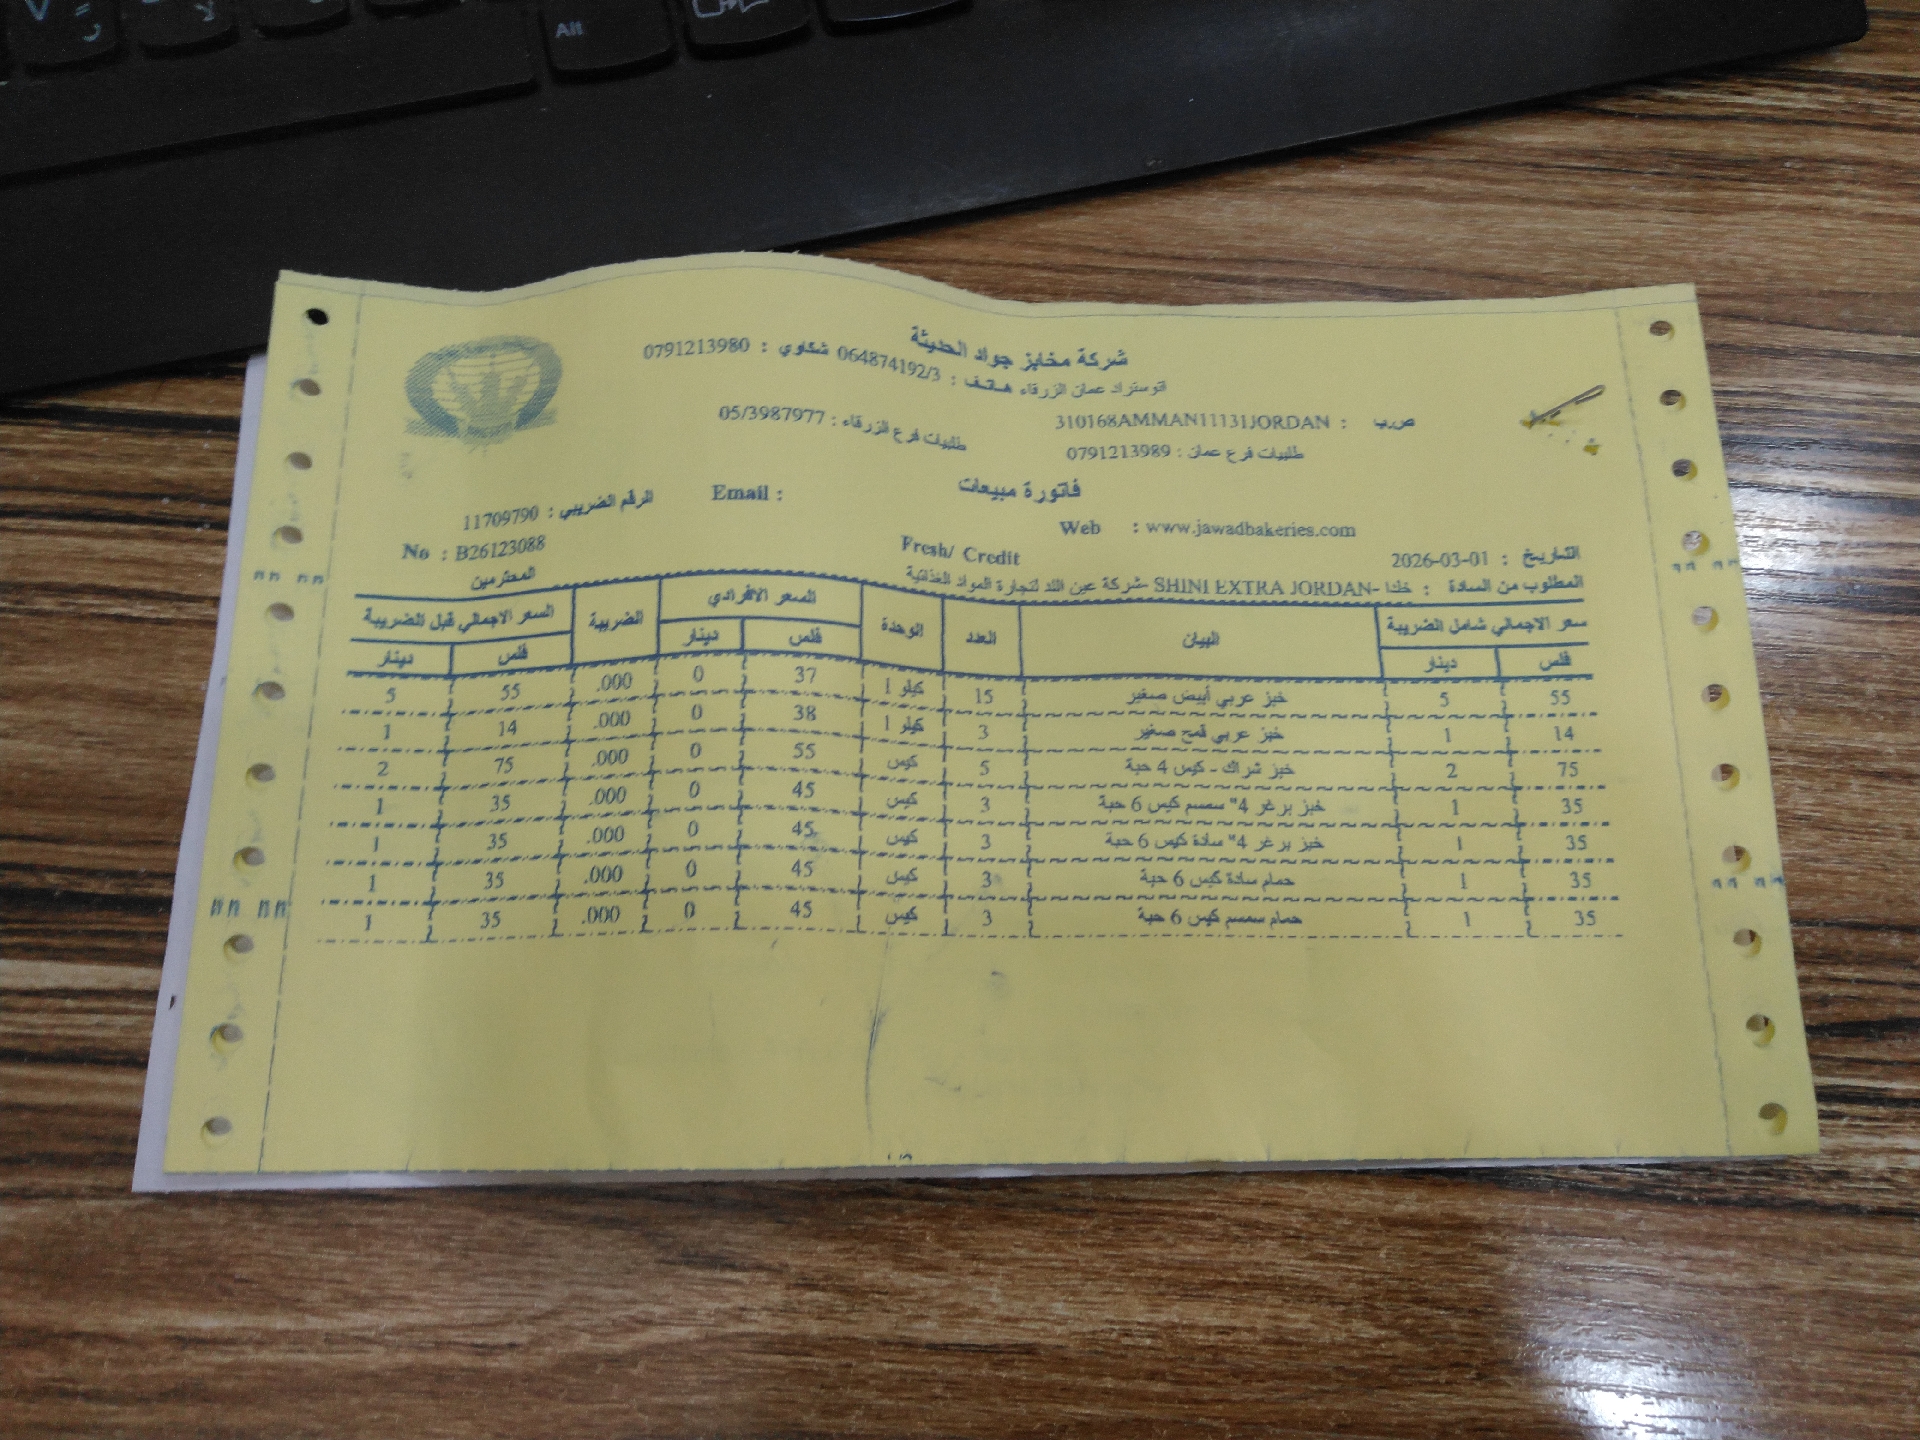 شركة مخابز جواد الحديثة
اتوستراد عمان الزرقاء هاتف : 064874192/3 شكاوي : 0791213980
ص.ب : 310168AMMAN11131JORDAN
طلبيات فرع عمان : 0791213989 طلبيات فرع الزرقاء : 05/3987977
فاتورة مبيعات
Email :
الرقم الضريبي : 11709790
Web : www.jawadbakeries.com
Fresh/ Credit
No : B26123088
التاريخ : 2026-03-01
المطلوب من السادة : خلدا -SHINI EXTRA JORDAN -شركة عين اللد لتجارة المواد الغذائية المحترمين
سعر الاجمالي شامل الضريبة البيان العدد الوحدة السعر الافرادي الضريبة السعر الاجمالي قبل الضريبة
فلس دينار فلس دينار فلس دينار
55 5 خبز عربي أبيض صغير 15 كيلو 1 37 0 .000 55 5
14 1 خبز عربي قمح صغير 3 كيلو 1 38 0 .000 14 1
75 2 خبز شراك - كيس 4 حبة 5 كيس 55 0 .000 75 2
35 1 خبز برغر 4" سمسم كيس 6 حبة 3 كيس 45 0 .000 35 1
35 1 خبز برغر 4" سادة كيس 6 حبة 3 كيس 45 0 .000 35 1
35 1 حمام سادة كيس 6 حبة 3 كيس 45 0 .000 35 1
35 1 حمام سمسم كيس 6 حبة 3 كيس 45 0 .000 35 1
Alt